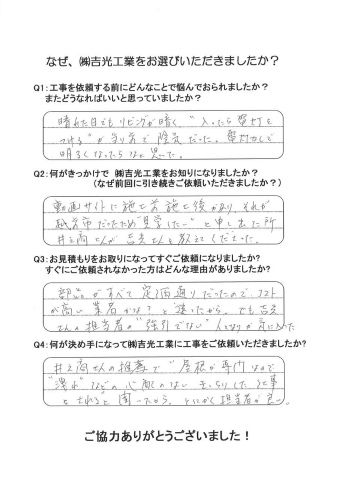 なぜ、㈱吉光工業をお選びいただきましたか？
Q1：工事を依頼する前にどんなことで悩んでおられましたか？
またどうなればいいと思っていましたか？
晴れた日でもリビングが暗く"入ったら電灯を
つける"が当り前で陰気だった。電灯なしで
明るくなったらなと思った。
Q2：何がきっかけで ㈱吉光工業をお知りになりましたか？
（なぜ前回に引き続きご依頼いただきましたか？）
動画サイトに施工前施工後があり、それが
だったため"見学したい"と申し出た所
井之商さんが吉光さんと教えてくださった。
Q3：お見積もりをお取りになってすぐご依頼になりましたか？
すぐにご依頼されなかった方はどんな理由がありましたか？
部品がすべて定価通りだったので、コスト
が高い業者かな？と迷ったから。でも吉光
さんの担当者の"強引でない"人となりが気に入った
Q4：何が決め手になって㈱吉光工業に工事をご依頼いただきましたか？
井之商さんの推薦で"屋根が専門なので
"漏れ"などの心配のない きっちりした仕事
をされると"聞いたから。とにかく担当者が良い。
ご協力ありがとうございました！